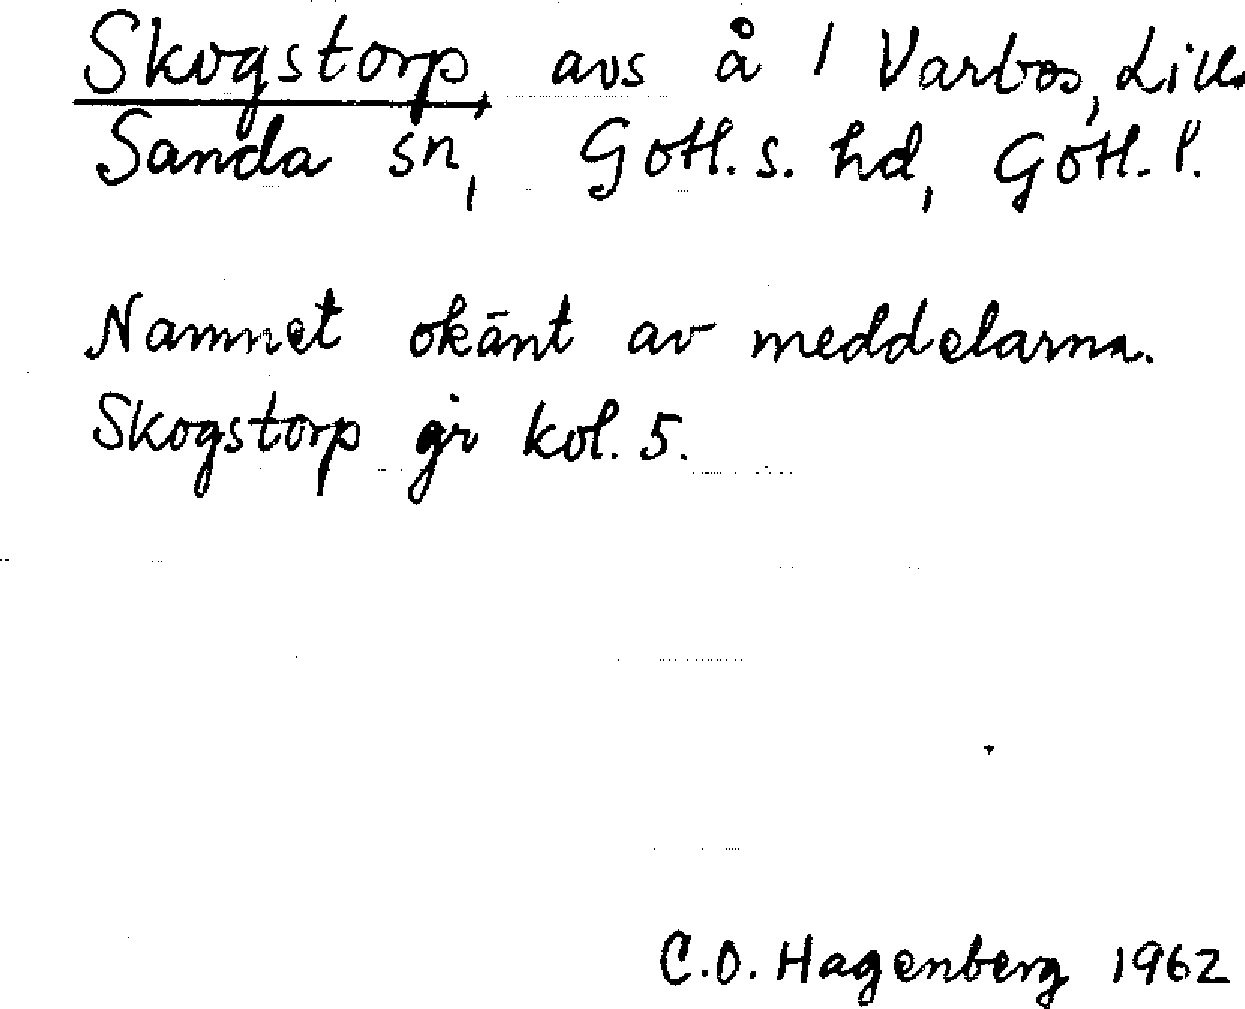 Skogstorp, avs å 1 Varbos, Lill.
Sanda sn, Gotl. s. hd, Gotl. l.
Namnet okänt av meddelarna.
Skogstorp gr kol. 5.
C.O. Hagenberg 1962